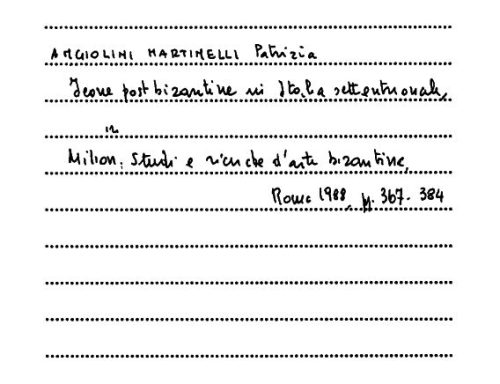 ANGIOLINI MARTINELLI Patrizia
Icone postbizantine in Italia settentrionale,
in
Milion. Studi e ricerche d'arte bizantina,
Roma 1988, pp. 367-384